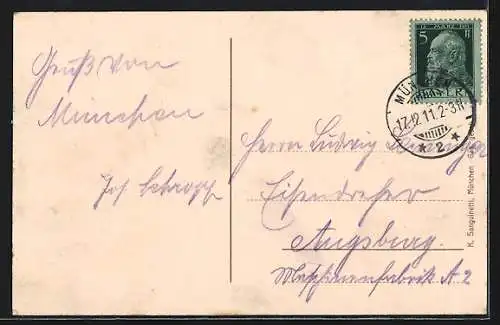 Gruß von
München
Jos Schropp
5
MÜNCHEN
17.12.11.2-3N
* 2 *
Herrn Ludwig
Eisendreher
Augsburg.
Maschinenfabrik A 2
K. Sanguinetti, München